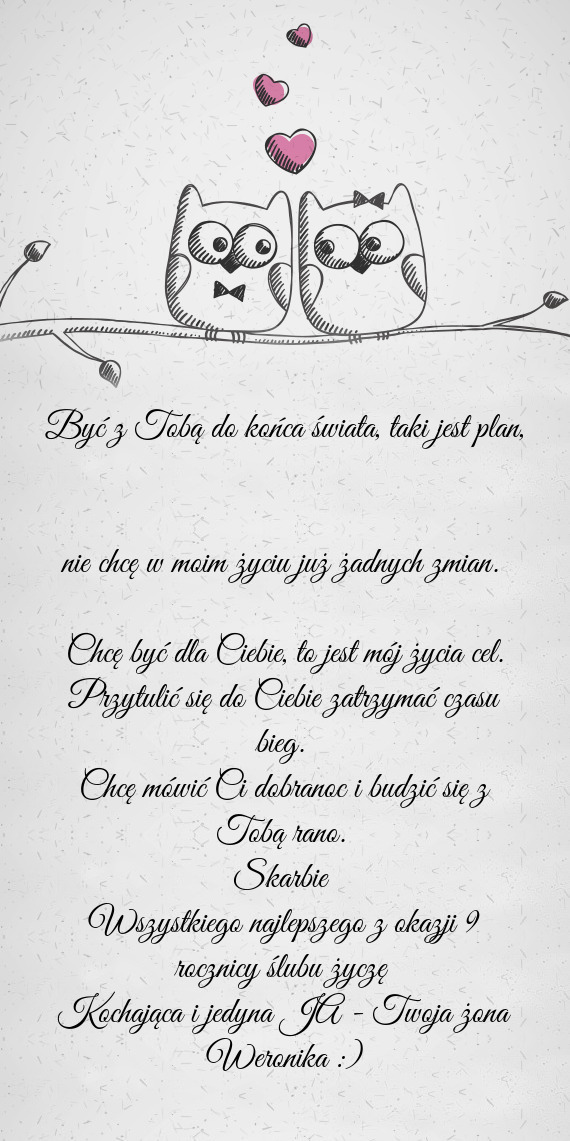 Być z Tobą do końca świata, taki jest plan,
nie chcę w moim życiu już żadnych zmian.
Chcę być dla Ciebie, to jest mój życia cel.
Przytulić się do Ciebie zatrzymać czasu
bieg.
Chcę mówić Ci dobranoc i budzić się z
Tobą rano.
Skarbie
Wszystkiego najlepszego z okazji 9
rocznicy ślubu życzę
Kochająca i jedyna JA - Twoja żona
Weronika :)